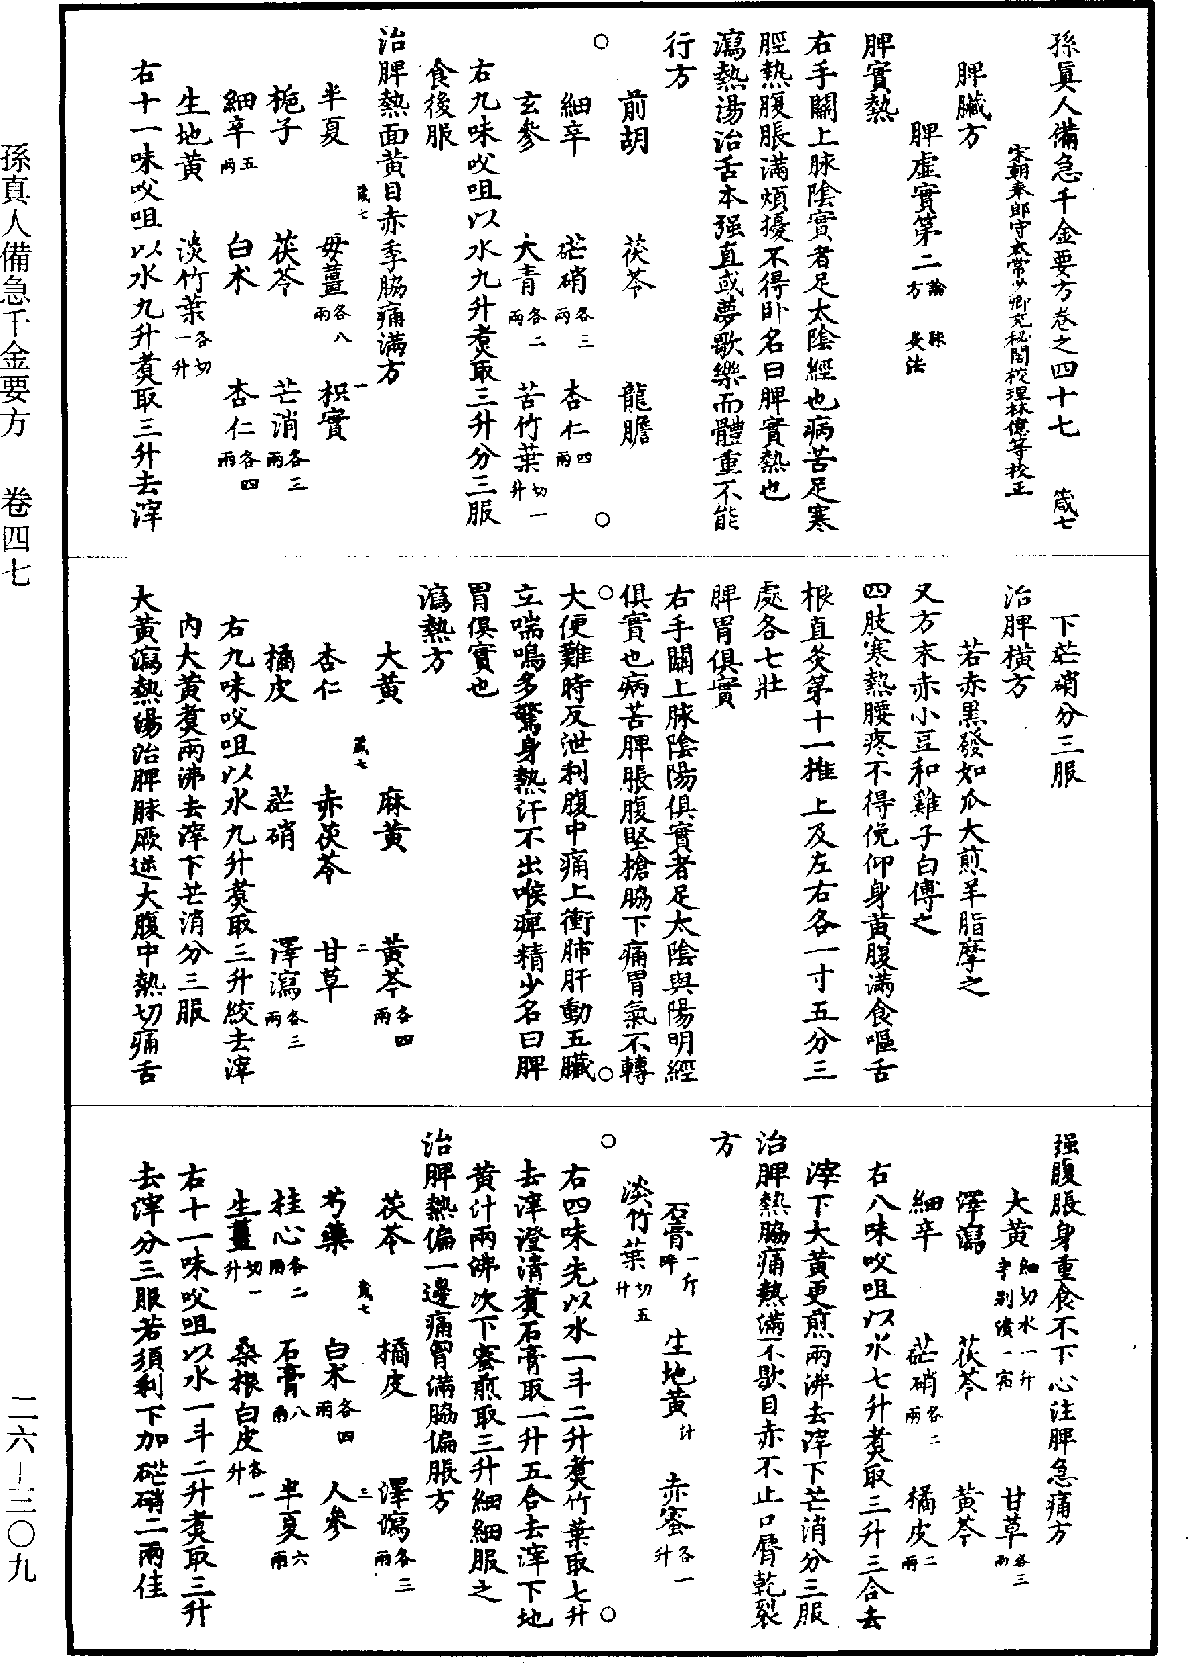 孫眞人備急千金要方卷之四十七　箴七
宋朝奉郎守太常少卿充秘閣校理林億等校正
脾臟方
脾虛實第二論 脉 方 灸法
脾實熱
右手關上脉陰實者足太陰經也病苦足寒
脛熱腹脹滿煩擾不得卧名曰脾實熱也
瀉熱湯治舌本强直或夢歌樂而體重不能
行方
前胡　茯苓　龍膽
細辛　芒硝各三兩　杏仁四兩
玄參　大青各二兩　苦竹葉切一升
右九味㕮咀以水九升煑取三升分三服
食後服
治脾熱面黃目赤季脇痛滿方
半夏　毋薑各八兩　枳實
箴七　一
梔子　茯苓　芒消各三兩
細辛五兩　白术　杏仁各四兩
生地黃　淡竹葉各切一升
右十一味㕮咀以水九升煑取三升去滓
下芒硝分三服
治脾橫方
若赤黑發如瓜大煎羊脂摩之
又方末赤小豆和雞子白傅之
四肢寒熱腰疼不得俛仰身黃腹滿食嘔舌
根直灸第十一椎上及左右各一寸五分三
處各七壯
脾胃俱實
右手關上脉陰陽俱實者足太陰與陽明經
俱實也病苦脾脹腹堅搶脇下痛胃氣不轉
大便難時反泄利腹中痛上衝肺肝動五臟
立喘鳴多驚身熱汗不出喉痺精少名曰脾
胃俱實也
瀉熱方
大黃　麻黃　黃芩各四兩
箴七　二
杏仁　赤茯苓　甘草
橘皮　芒硝　澤瀉各三兩
右九味㕮咀以水九升煑取三升絞去滓
內大黃煑兩沸去滓下芒消分三服
大黃瀉熱湯治脾脉厥逆大腹中熱切痛舌
强腹脹身重食不下心注脾急痛方
大黃細切水一斤半別漬一宿　甘草各三兩
澤瀉　茯苓　黃芩
細辛　芒硝各二兩　橘皮二兩
右八味㕮咀以水七升煑取三升三合去
滓下大黃更煎兩沸去滓下芒消分三服
治脾熱脇痛熱滿不歇目赤不止口脣乾裂
方
石膏一斤碎　生地黃汁　赤蜜各一升
淡竹葉切五升
右四味先以水一斗二升煑竹葉取七升
去滓澄清煑石膏取一升五合去滓下地
黃汁兩沸次下蜜煎取三升細細服之
治脾熱偏一邊痛胷滿脇偏脹方
茯苓　橘皮　澤瀉各三兩
箴七　三
芍藥　白术各四兩　人參
桂心各二兩　石膏八兩　半夏六兩
生薑切一升　桑根白皮各一升
右十一味㕮咀以水一斗二升煑取三升
去滓分三服若須利下加芒硝二兩佳
孫真人備急千金要方　卷四七
二六–三〇九